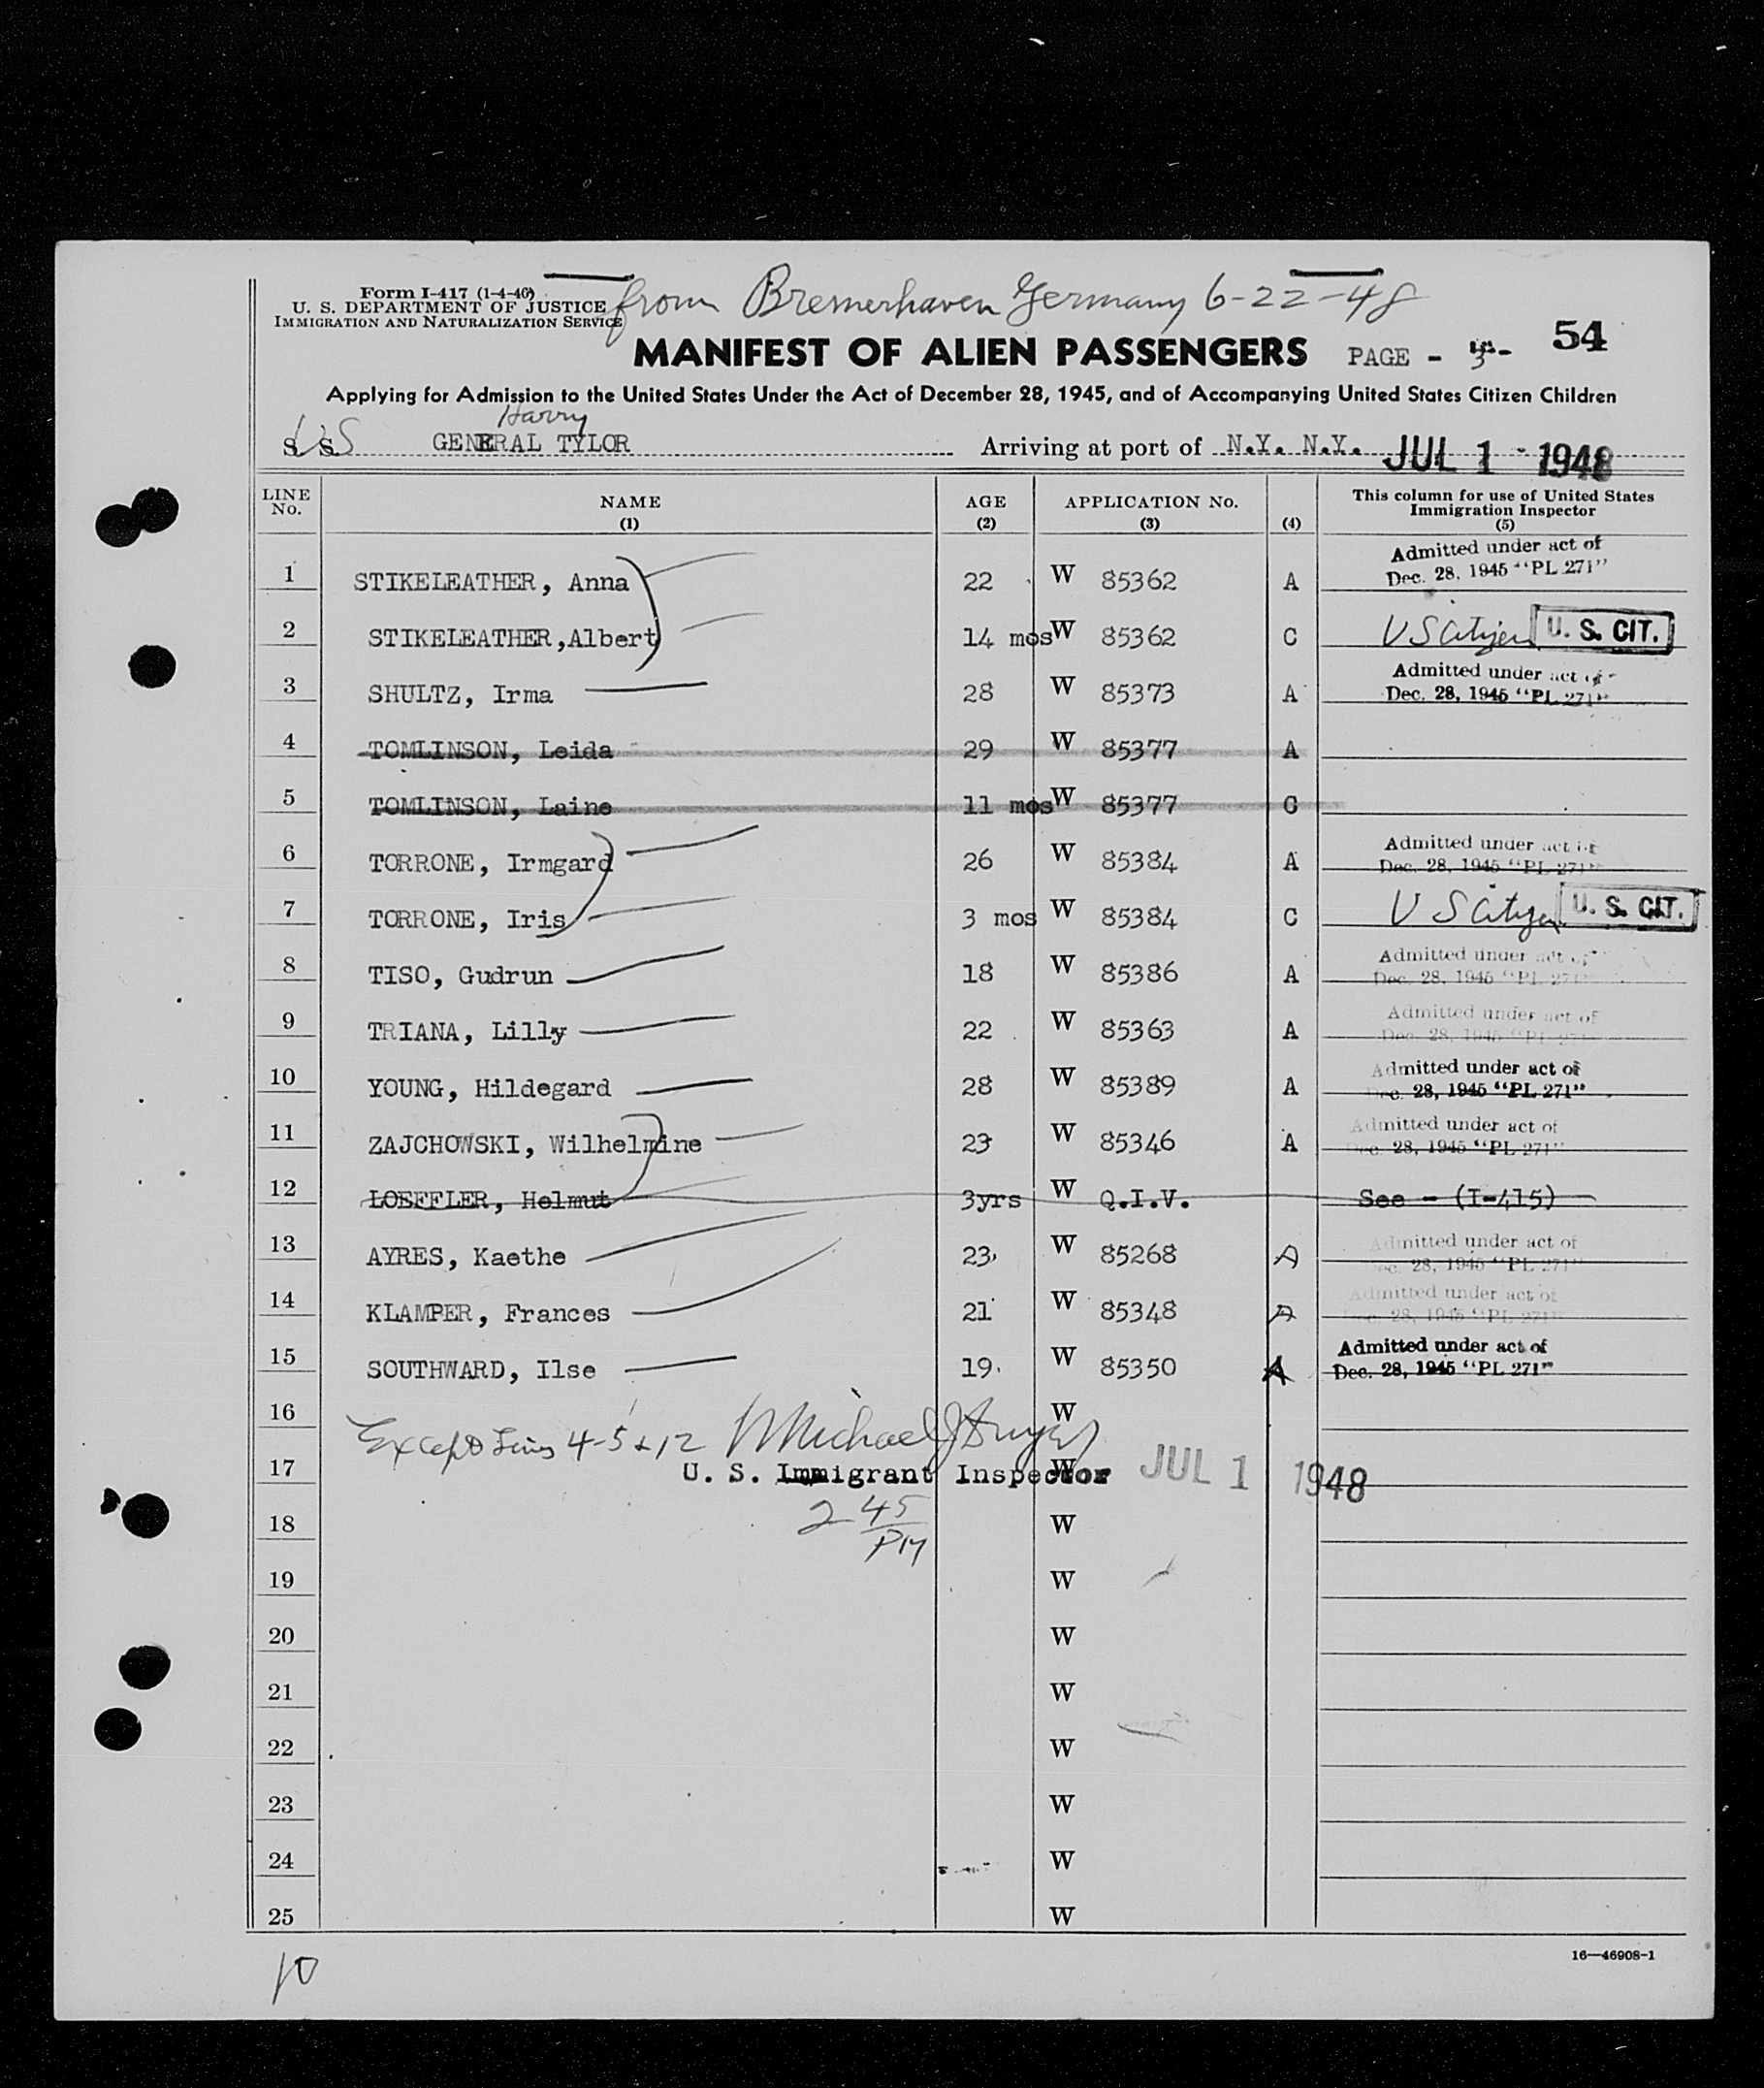 Form I-417 (1-4-46)
U. S. DEPARTMENT OF JUSTICE
IMMIGRATION AND NATURALIZATION SERVICE
from Bremerhaven Germany 6-22-48
MANIFEST OF ALIEN PASSENGERS PAGE - 3 - 54
Applying for Admission to the United States Under the Act of December 28, 1945, and of Accompanying United States Citizen Children
Harry
S S US GENERAL TYLOR Arriving at port of N.Y. N.Y. JUL 1 - 1948
LINE No. NAME (1) AGE (2) APPLICATION No. (3) (4) This column for use of United States Immigration Inspector (5)
1 STIKELEATHER, Anna 22 W 85362 A Admitted under act of Dec. 28, 1945 "PL 271"
2 STIKELEATHER,Albert 14 mos W 85362 C U S Citizen U. S. CIT.
3 SHULTZ, Irma 28 W 85373 A Admitted under act of Dec. 28, 1945 "PL 271"
4 TOMLINSON, Leida 29 W 85377 A
5 TOMLINSON, Laine 11 mos W 85377 C
6 TORRONE, Irmgard 26 W 85384 A Admitted under act of Dec. 28, 1945 "PL 271"
7 TORRONE, Iris 3 mos W 85384 C U S Citizen U. S. CIT.
8 TISO, Gudrun 18 W 85386 A Admitted under act of Dec. 28, 1945 "PL 271"
9 TRIANA, Lilly 22 W 85363 A Admitted under act of Dec. 28, 1945 "PL 271"
10 YOUNG, Hildegard 28 W 85389 A Admitted under act of Dec. 28, 1945 "PL 271"
11 ZAJCHOWSKI, Wilhelmine 23 W 85346 A Admitted under act of Dec. 28, 1945 "PL 271"
12 LOEFFLER, Helmut 3yrs W Q.I.V. See - (I-415)
13 AYRES, Kaethe 23 W 85268 A Admitted under act of Dec. 28, 1945 "PL 271"
14 KLAMPER, Frances 21 W 85348 A Admitted under act of Dec. 28, 1945 "PL 271"
15 SOUTHWARD, Ilse 19 W 85350 A Admitted under act of Dec. 28, 1945 "PL 271"
16 W
Except Lines 4-5 & 12 Michael J
17 U. S. Immigrant Inspector W JUL 1 1948
18 2 45 PM W
19 W
20 W
21 W
22 W
23 W
24 W
25 W
16—46908-1
10